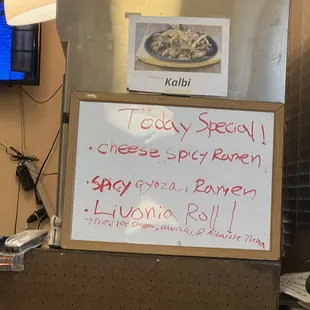 Kalbi
Today Special!
• cheese spicy Ramen
• spicy gyoza, Ramen
• Livonia Roll!
avocado, &
Tuna